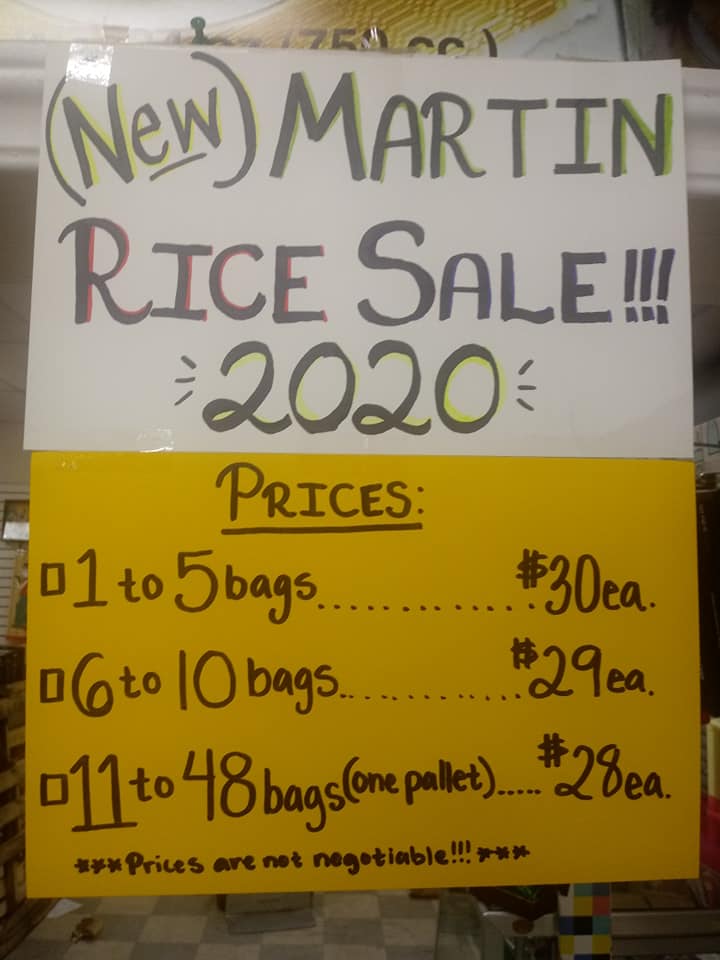 (750 cc.)
(New) MARTIN
RICE SALE!!!
2020
PRICES:
1 to 5 bags............$30ea.
6 to 10 bags............$29ea.
11 to 48 bags (one pallet).....$28ea.
***Prices are not negotiable!!!***